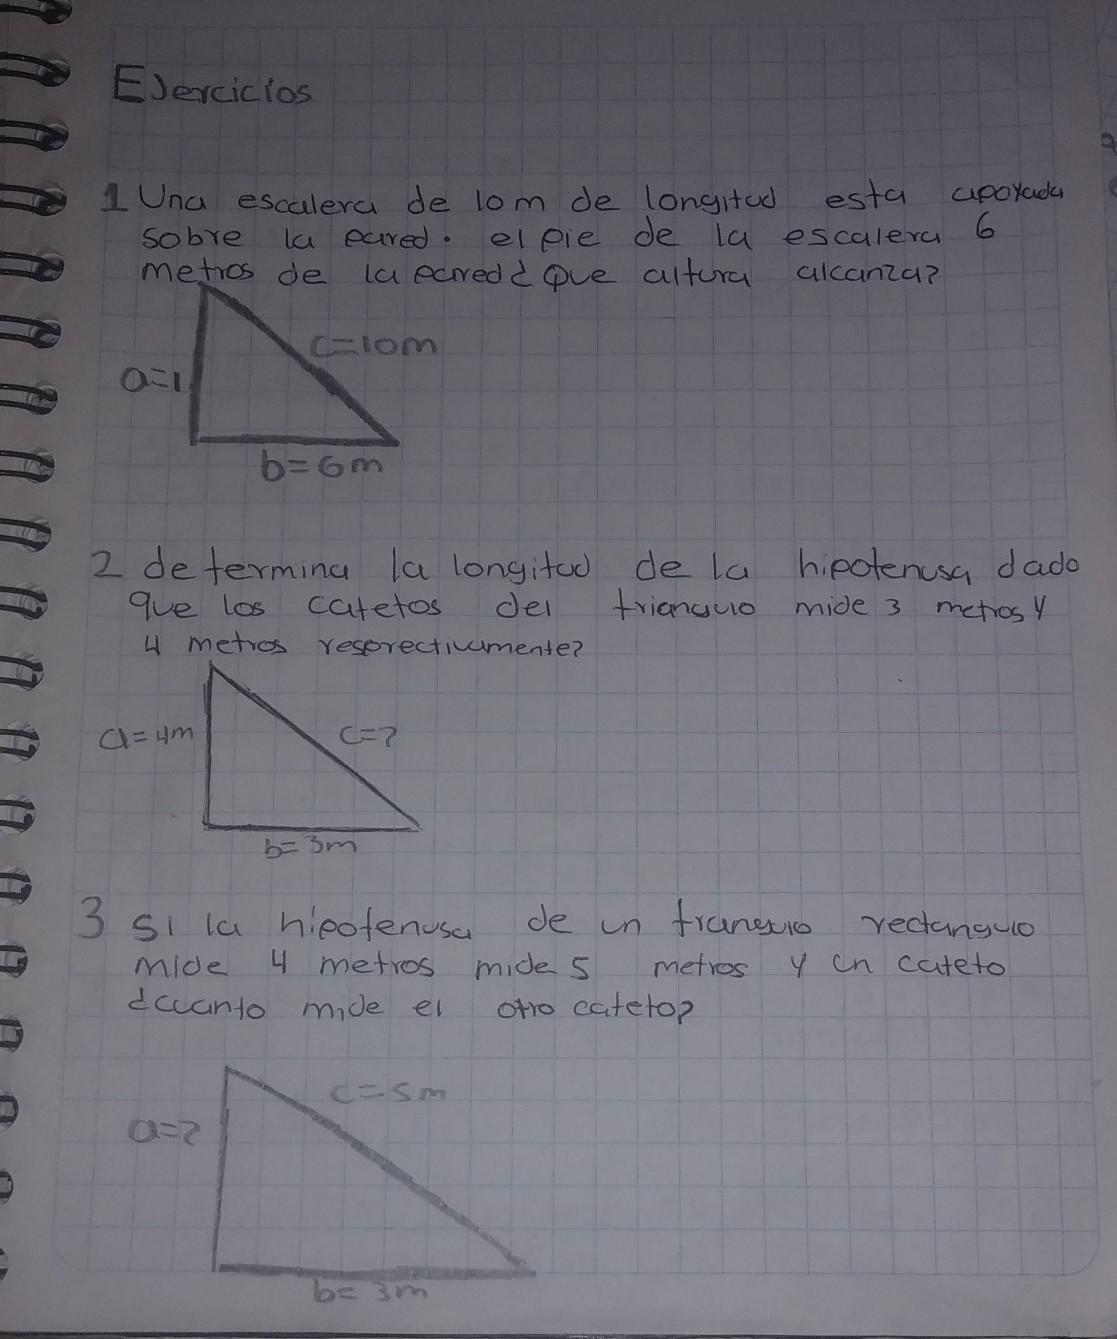 Ejercicios
1 Una escalera de 10m de longitud esta apoyada
sobre la pared. el pie de la escalera 6
metros de la pared¿ Que altura alcanza?
c=10m
a=1
b=6m
2 determina la longitud de la hipotenusa dado
que los catetos del triangulo mide 3 metros y
4 metros resprectivamente?
a=4m
c=?
b=3m
3 si la hipotenusa de un trangulo rectangulo
mide 4 metros mide 5 metros y un cateto
¿cuanto mide el otro cateto?
c=5m
a=?
b=3m